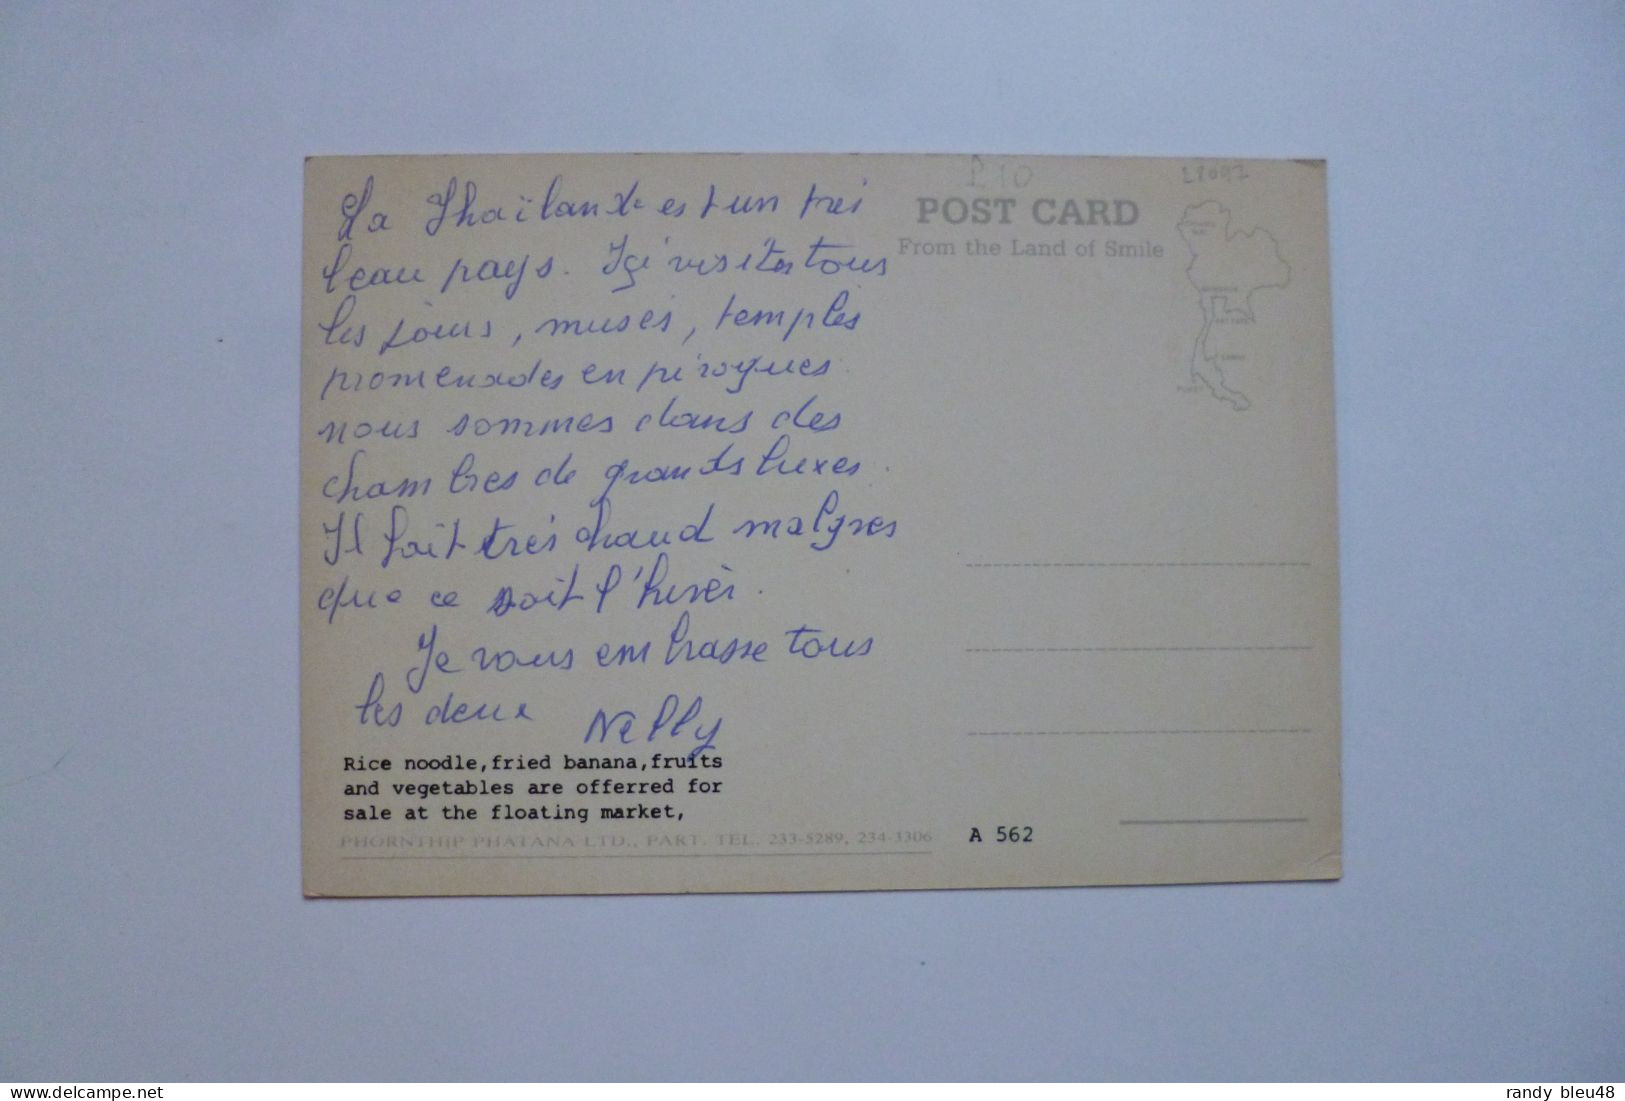 La Thaïlande est un très
beau pays. Içi visites tous
les jours, musés, temples
promenades en pirogues.
nous sommes dans des
chambres de grands luxes.
Il fait très chaud malgres
que ce soit l'hivers.
Je vous embrasse tous
les deux Nelly
Rice noodle,fried banana,fruits
and vegetables are offerred for
sale at the floating market,
PHORNTHIP PHATANA LTD., PART. TEL. 233-5289, 234-3306
A 562
P 10
POST CARD
From the Land of Smile
delcampe.net
randy_bleu48